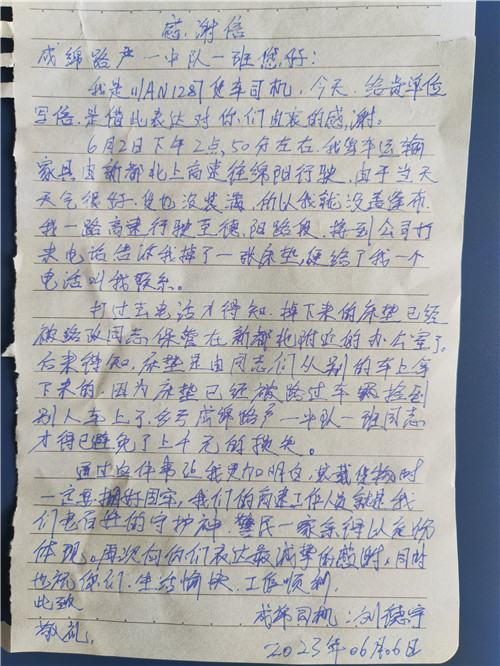 感谢信
成绵路产一中队一班您好：
我是川AN128牜货车司机，今天给贵单位
写信，是借此表达对你们由衷的感谢。
6月2日下午2点50分左右，我驾车运输
家具由新都北上高速往绵阳行驶，由于当天
天气很好，货也没装满，所以我就没盖篷布，
我一路高速行驶至德阳路段，接到公司打
来电话告诉我掉了一张床垫，便给了我一个
电话叫我联系。
打过去电话才得知，掉下来的床垫已经
被路政同志保管在新都北附近的办公室了。
后来得知，床垫是由同志们从别的车上拿
下来的，因为床垫已经被路过车辆捡到
别人车上了，多亏成绵路产一中队一班同志
才得已避免了上千元的损失。
通过这件事让我更加明白，装载货物时
一定要捆好固牢，我们的高速工作人员就是我
们老百姓的守护神，警民一家亲得以充份
体现。再次向你们表达最诚挚的感谢，同时
也祝你们，生活愉快，工作顺利。
此致
敬礼。
成都司机：刘德宇
2023年06月06日